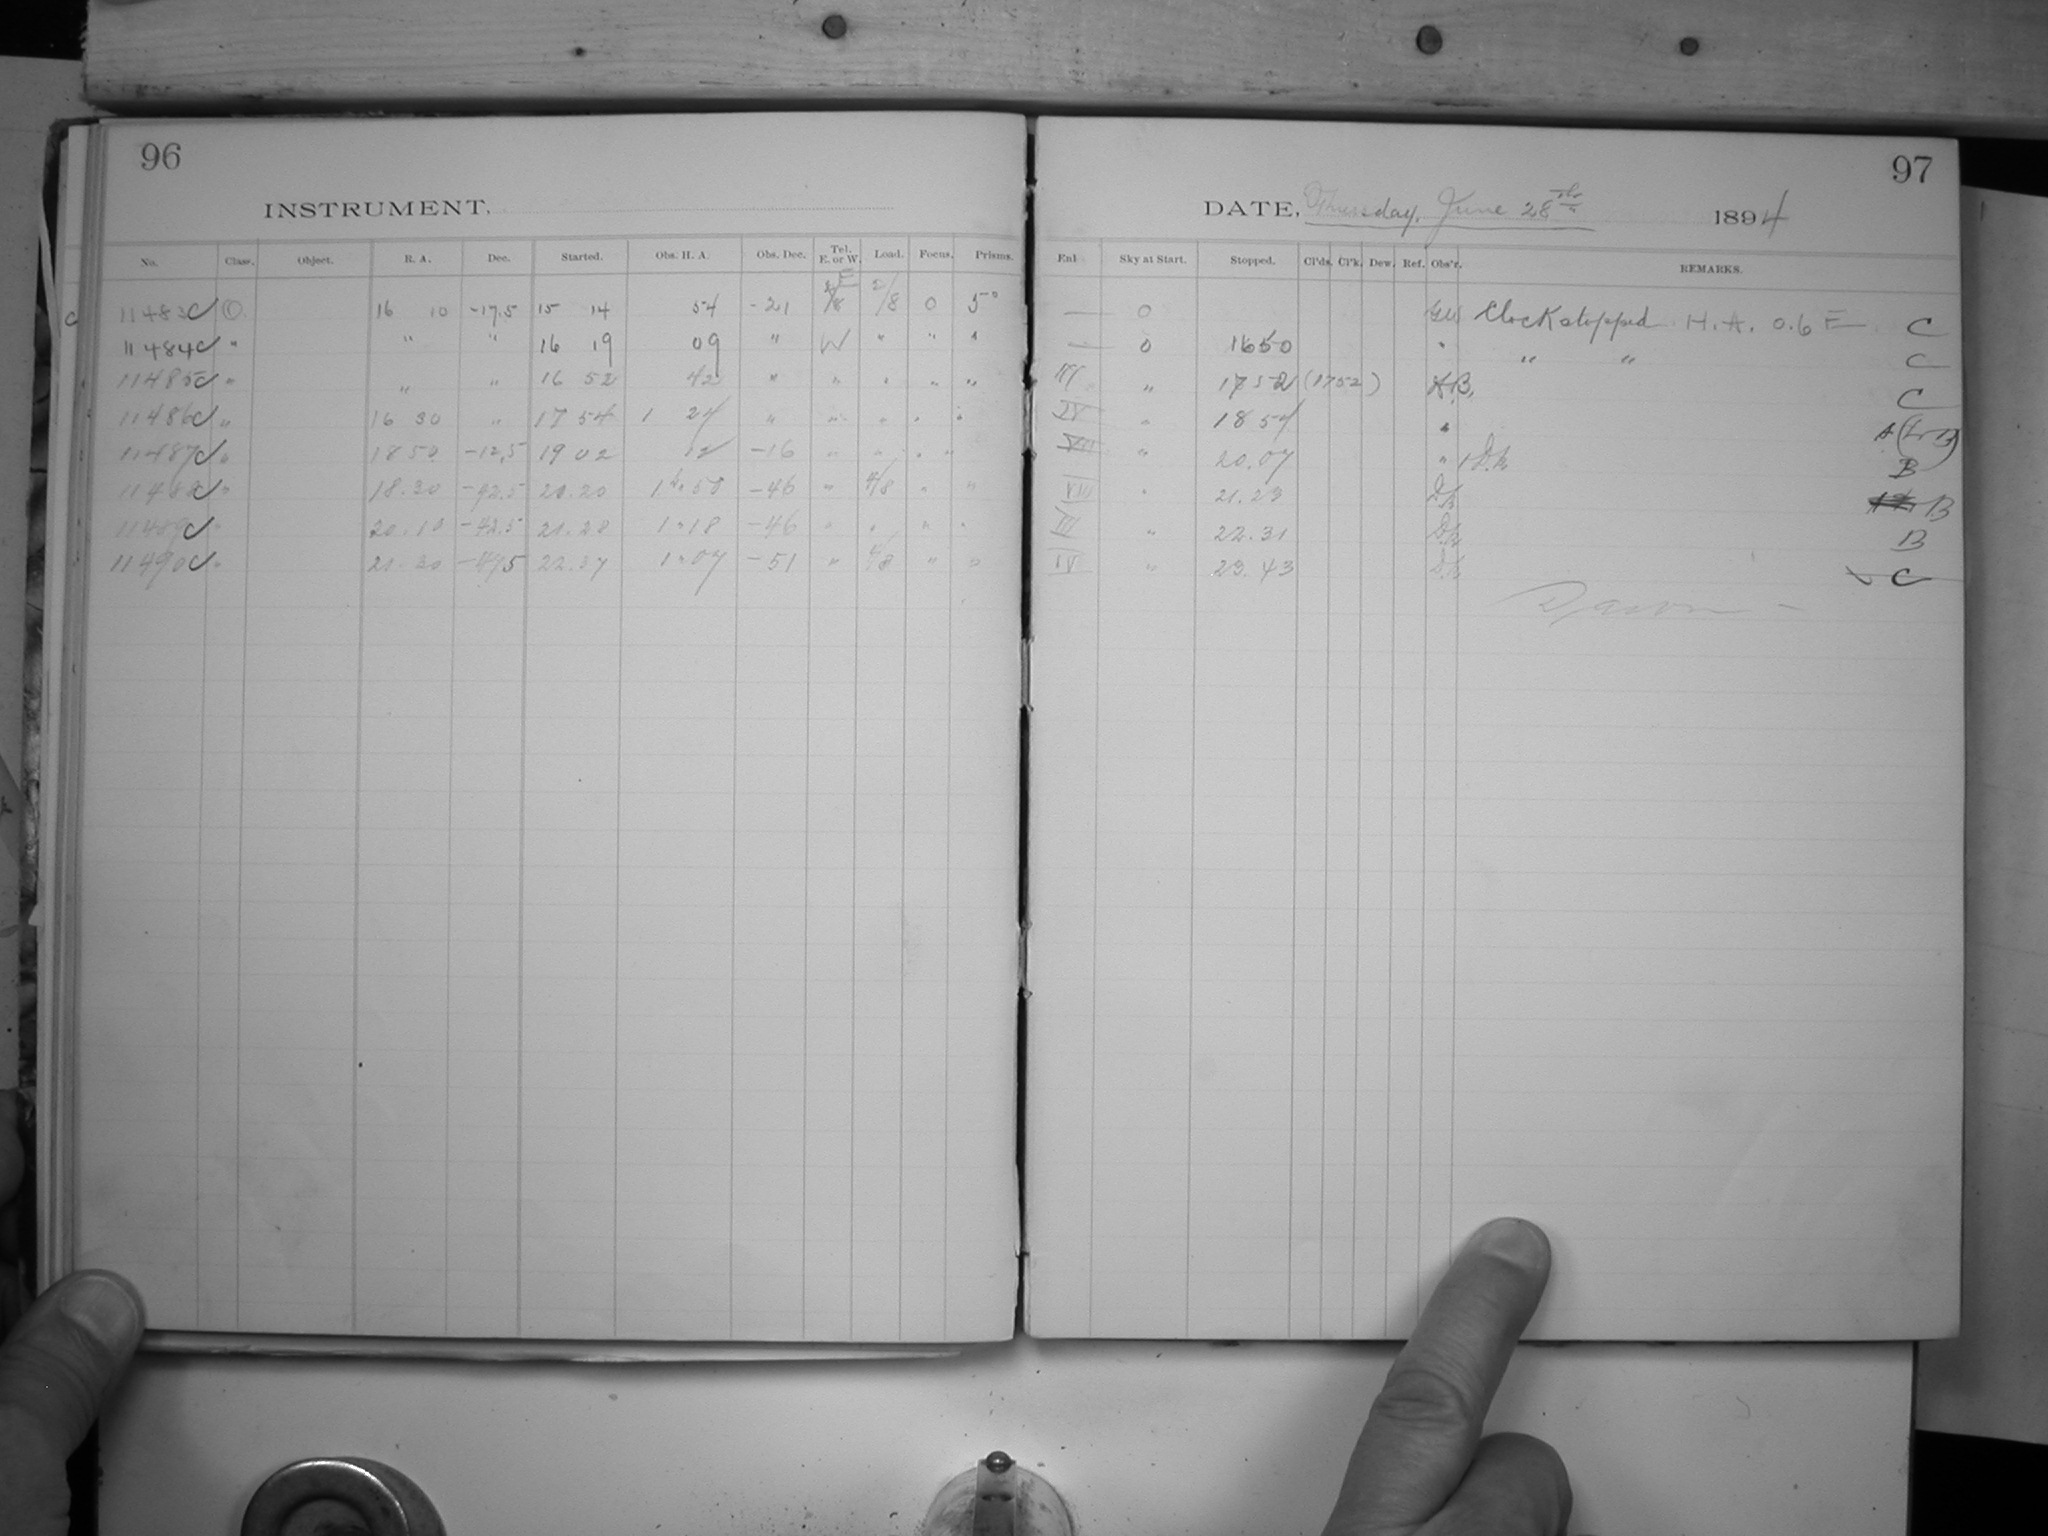 96
INSTRUMENT,
No. Class. Object. R. A. Dec. Started. Obs. H. A. Obs. Dec. Tel. E. or W. Load. Focus. Prisms.
11483 C O. 16 10 -17.5 15 14 54 -21 E 2/8 0 5°
11484 C " " " 16 19 09 " W " " "
11485 C " " " 16 52 42 " " " " "
11486 C " 16 30 " 17 54 1 24 " " " " "
11487 C " 18 50 -12.5 19 02 12 -16 " " " "
11488 C " 18.30 -42.5 20.20 1 50 -46 " " "
11489 C " 20.10 -42.5 21.28 1 18 -46 " " " "
11490 C " 21.30 -47.5 22.37 1 07 -51 " " "
97
DATE, Thursday, June 28th 1894
Enl Sky at Start. Stopped. Cl'ds. Cl'k. Dew. Ref. Obs'r. REMARKS.
— 0 Clock stopped H. A. 0.6 E C
— 0 1650 " " " C
" 1752 (1752) A.B. C
IV " 1854 " A
" 20.07 " B
VIII " 21.23 B
III " 22.31 B
IV " 23.43 C
Dawn —